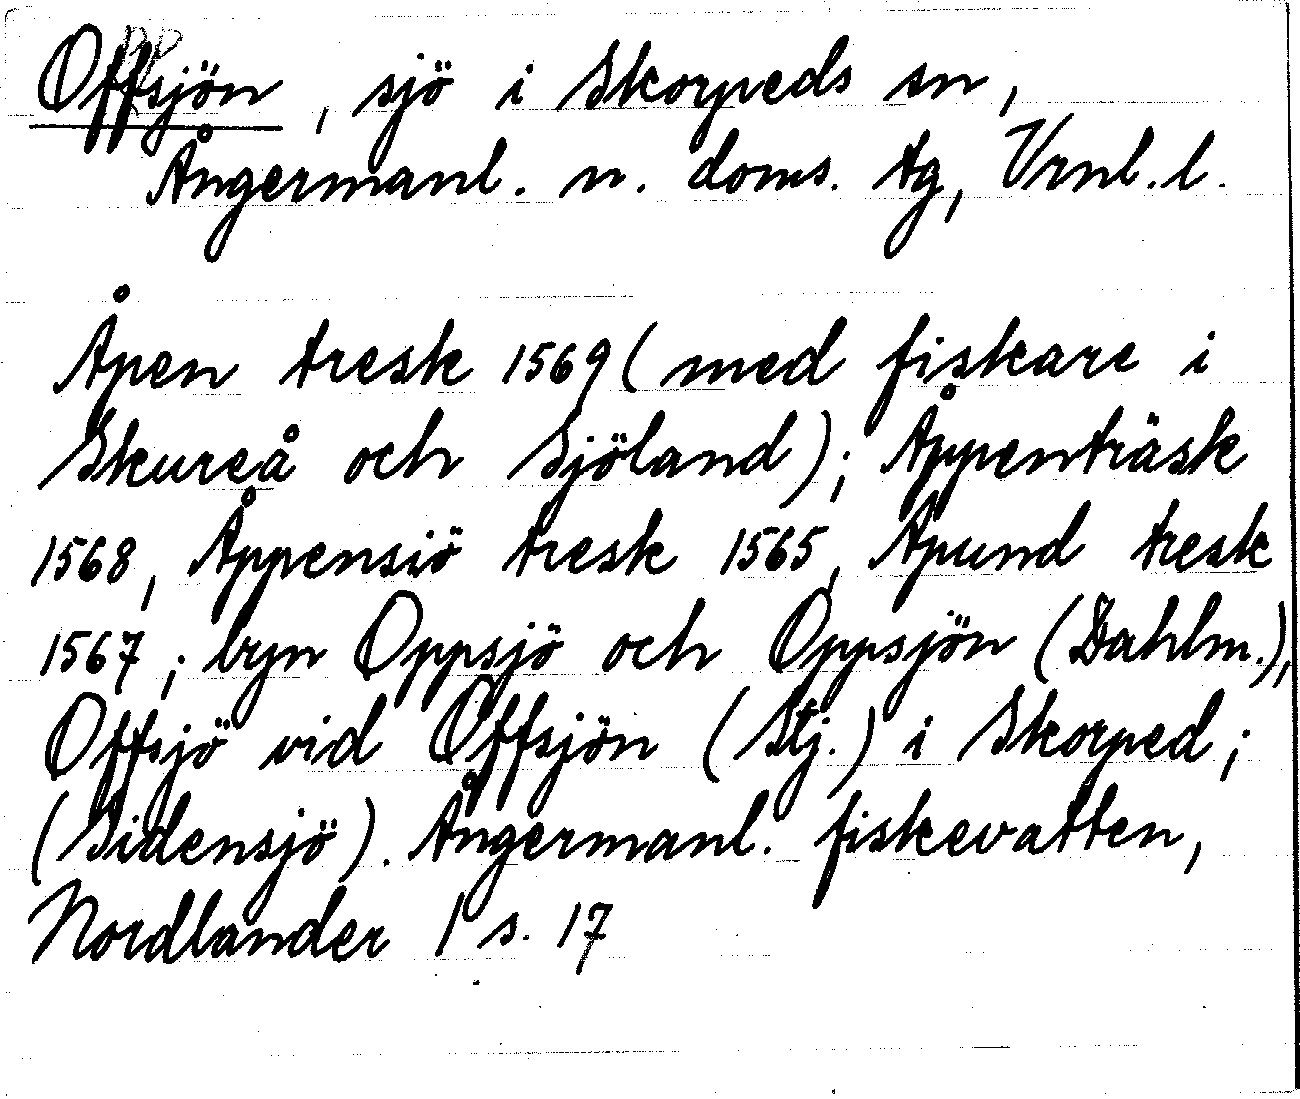 Offsjön, sjö i Skorpeds sn,
Ångermanl. n. doms. tg, Vrnl. l.
Åpen tresk 1569 (med fiskare i
Skureå och Sjöland); Åppenträsk
1568, Åppensiö tresk 1565, Apund tresk
1567; byn Oppsjö och Oppsjön (Dahlm.),
Offsjö vid Offsjön (Stj.) i Skorped;
(Sidensjö). Ångermanl. fiskevatten,
Nordlander 1 s. 17